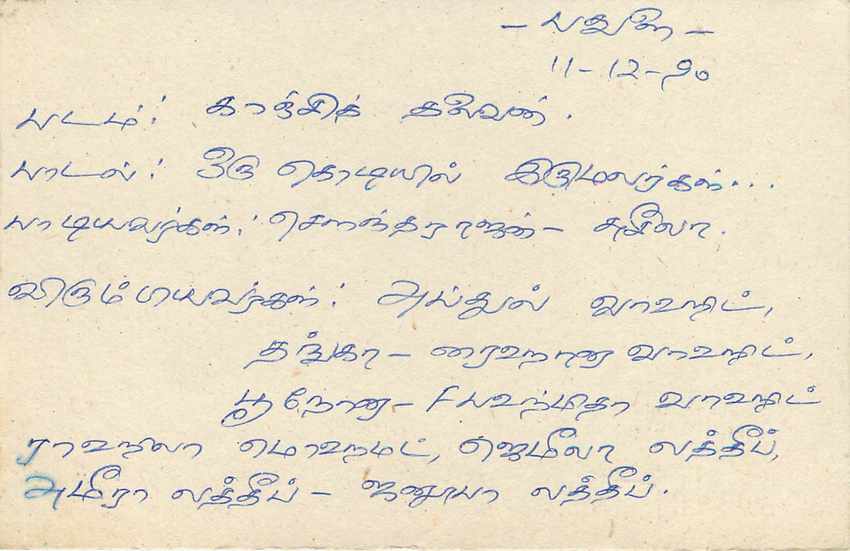 - பதுளை -
11-12-90
படம்: காஞ்சித் தலைவன்.
பாடல்: ஒரு கொடியில் இருமலர்கள்...
பாடியவர்கள்: சௌந்தரராஜன் - சுசீலா.
விரும்பியவர்கள்: அப்துல் வாஹிட்,
தங்கா - ரைஹானா வாஹிட்,
பூ நோனா - வாஹிட்
ராஹிலா மொஹமட், ஜெமீலா லத்தீப்,
அமீரா லத்தீப் - லத்தீப்.